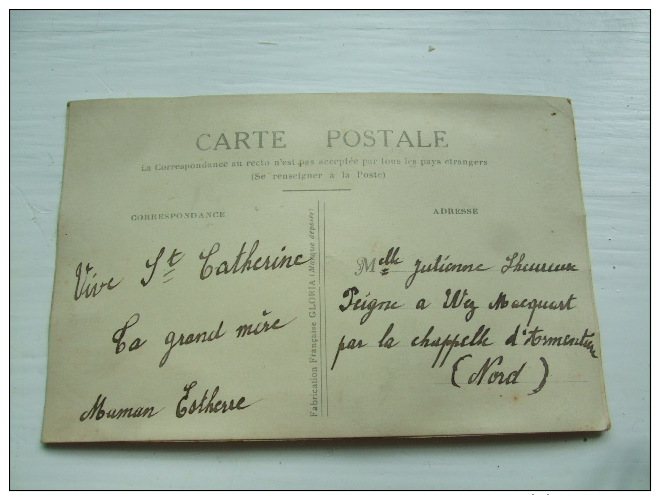 CARTE POSTALE
La Correspondance au recto n'est pas acceptée par tous les pays étrangers
(Se renseigner à la Poste)
CORRESPONDANCE
Vive St Catherine
Ta grand mère
Maman Estherre
Fabrication Française GLORIA (Marque déposée)
ADRESSE
Melle Julienne Lheureux
Peigne a Wez Macquart
par la chappelle d'Armentière
(Nord)